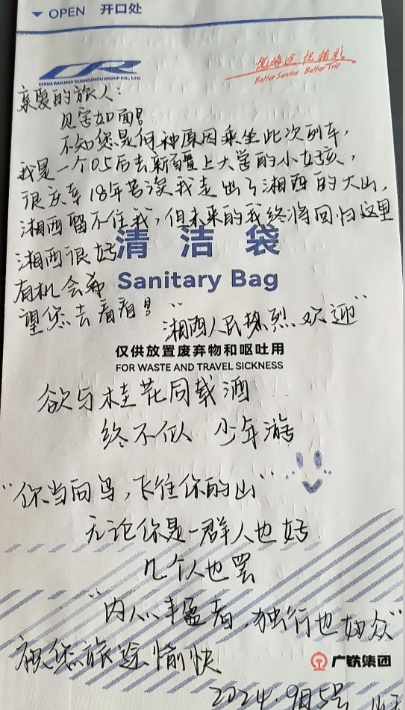 OPEN 开口处
CHINA RAILWAY GUANGZHOU GROUP CO., LTD.
Better Service Better Trip
亲爱的旅人：
见字如面！
不知您是何种原因乘坐此次列车，
我是一个05后去新疆上大学的小女孩，
很庆幸18年苦读我走出了湘西的大山，
湘西留不住我，但未来的我终将回归这里
湘西很好
清洁袋
有机会希
Sanitary Bag
望您去看看！
"湘西人民热烈欢迎"
仅供放置废弃物和呕吐用
FOR WASTE AND TRAVEL SICKNESS
欲与桂花同载酒
终不似 少年游
"你当向鸟，飞往你的山"
无论你是一群人也好
几个人也罢
"内心丰盈者，独行也如众"
祝您旅途愉快
广铁集团
2024.9月5号